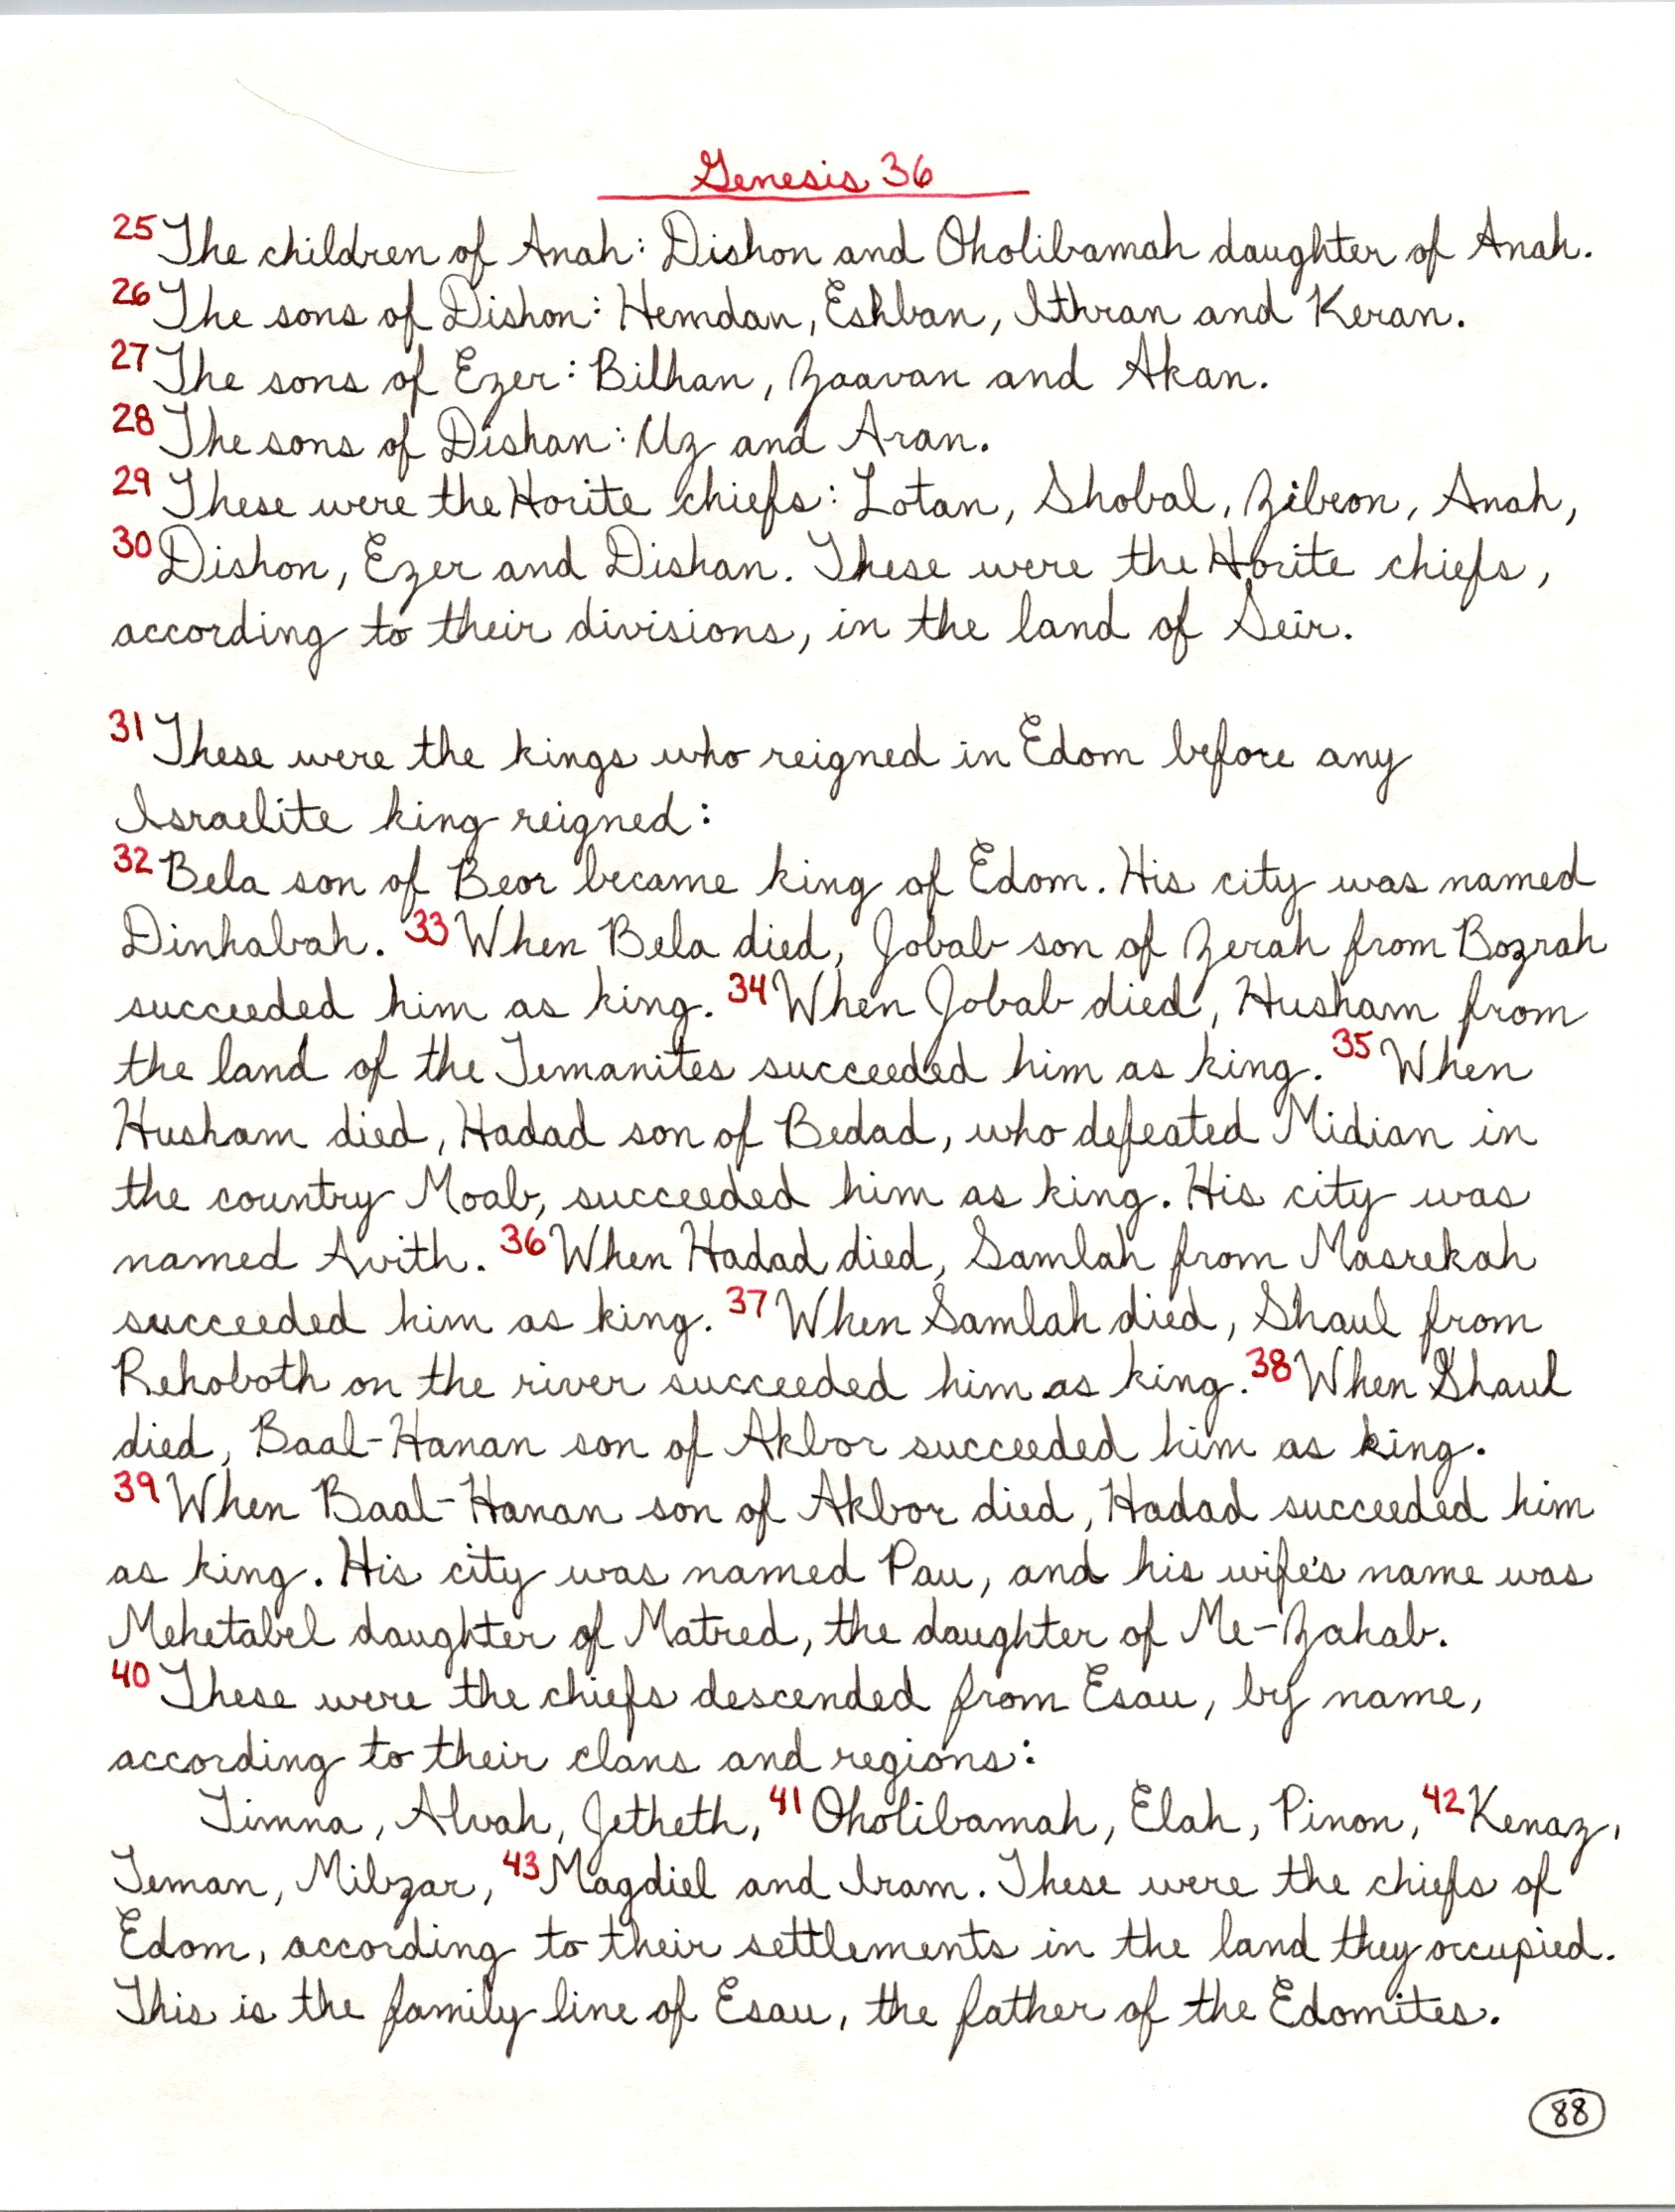 Genesis 36
25 The children of Anah: Dishon and Oholibamah daughter of Anah.
26 The sons of Dishon: Hemdan, Eshban, Ithran and Keran.
27 The sons of Ezer: Bilhan, Zaavan and Akan.
28 The sons of Dishan: Uz and Aran.
29 These were the Horite chiefs: Lotan, Shobal, Zibeon, Anah,
30 Dishon, Ezer and Dishan. These were the Horite chiefs,
according to their divisions, in the land of Seir.
31 These were the kings who reigned in Edom before any
Israelite king reigned:
32 Bela son of Beor became king of Edom. His city was named
Dinhabah. 33 When Bela died, Jobab son of Zerah from Bozrah
succeeded him as king. 34 When Jobab died, Husham from
the land of the Temanites succeeded him as king. 35 When
Husham died, Hadad son of Bedad, who defeated Midian in
the country Moab, succeeded him as king. His city was
named Avith. 36 When Hadad died, Samlah from Masrekah
succeeded him as king. 37 When Samlah died, Shaul from
Rehoboth on the river succeeded him as king. 38 When Shaul
died, Baal-Hanan son of Akbor succeeded him as king.
39 When Baal-Hanan son of Akbor died, Hadad succeeded him
as king. His city was named Pau, and his wife's name was
Mehetabel daughter of Matred, the daughter of Me-Zahab.
40 These were the chiefs descended from Esau, by name,
according to their clans and regions:
Timna, Alvah, Jetheth, 41 Oholibamah, Elah, Pinon, 42 Kenaz,
Teman, Mibzar, 43 Magdiel and Iram. These were the chiefs of
Edom, according to their settlements in the land they occupied.
This is the family line of Esau, the father of the Edomites.
88